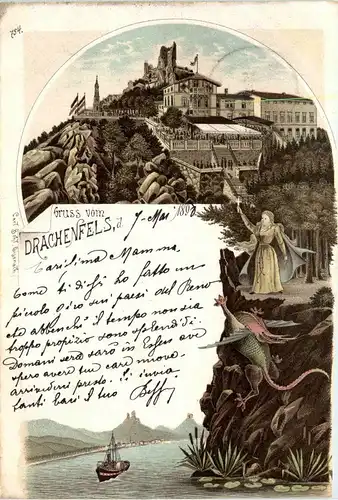 734.
Gruss vom
DRACHENFELS, d. 7 - Mai 1898
Carissima Mamma,
Come ti dissi ho fatto un
piccolo giro nei paesi del Reno
che abbenchè il tempo non sia
troppo propizio sono splendidi.
Domani sarà sarò in Essen ove
spero avere tue care nuove.
arrivederci presto. Ti invia
tanti baci il tuo Beppe